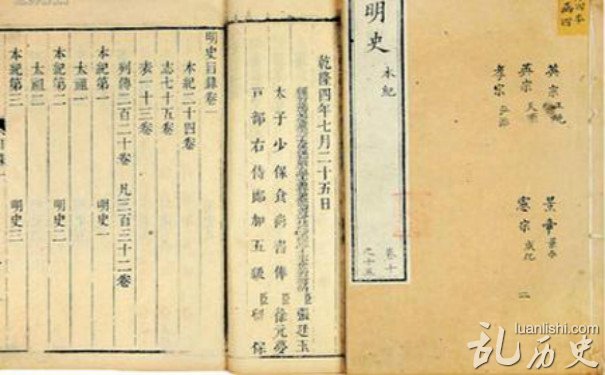 英宗正統 景帝景泰
英宗天順 憲宗成化
孝宗弘治 二
明史 本紀
卷十
之十五
乾隆四年七月二十五日
臣張廷玉
太子少保食尚書俸臣徐元夢
戶部右侍郎加五級臣留保
明史目錄卷一
本紀二十四卷
志七十五卷
表一十三卷
列傳二百二十卷 凡三百三十二卷
本紀第一 明史一
太祖一
本紀第二 明史二
太祖二
本紀第三 明史三
luanlishi.com
乱历史